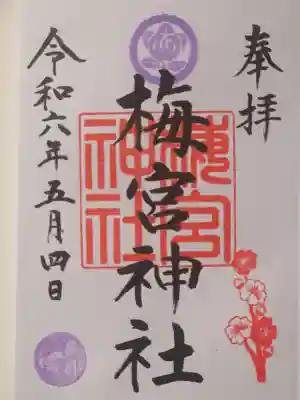 奉拝
梅宮神社
梅宮神社
令和六年五月四日